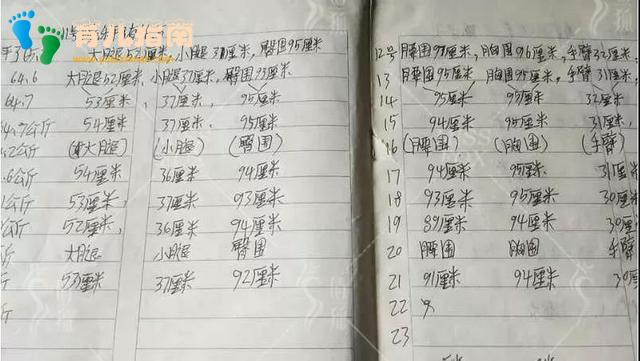 育儿指南
大腿52厘米,小腿37厘米,臀围95厘米
64.6 大腿52厘米,小腿37厘米,臀围95厘米
64.7 53厘米、37厘米、95厘米
公斤 54厘米 37厘米、95厘米
公斤 (大腿) (小腿) (臀围)
公斤 54厘米 36厘米 94厘米
公斤 53厘米 37厘米 94厘米
公斤 52厘米, 36厘米 94厘米
大腿 小腿 臀围
53厘米 37厘米 92厘米
12号 腰围97厘米,胸围96厘米,手臂32厘米
13 腰围95厘米,胸围95厘米,手臂31厘米,
14 95厘米 95厘米 32厘米
15 94厘米 95厘米 31厘米,
16 (腰围) (胸围) (手臂)
17 94厘米 95厘米 31厘米
18 93厘米 95厘米 30厘米
19 89厘米 94厘米 30厘米
20 腰围 胸围 手臂
21 91厘米 94厘米 30厘
22
23